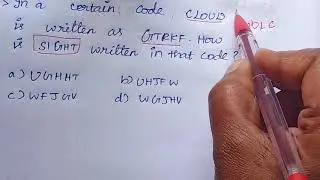 > In a certain Code, CLOUD
is written as GTRKF. How
is SIGHT written in that code?
a) UGHHT b) UHJFW
c) WFJGV d) WGJHV